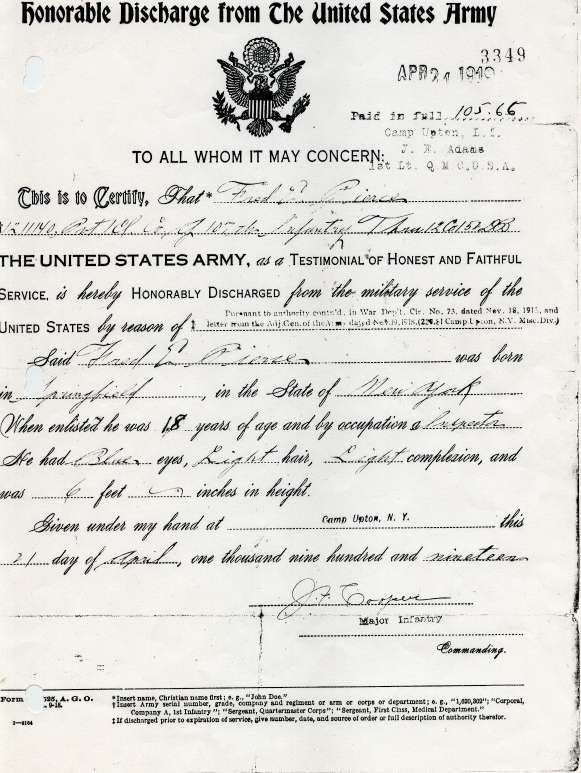 Honorable Discharge from The United States Army
3349
APR 21 1919
Paid in full 105.65
Camp Upton, L.I.
J. E. Adams
1st Lt. Q M C. U.S.A.
TO ALL WHOM IT MAY CONCERN:
This is to Certify, That* Fred E. Pierce
Pvt 1Cl. Co. G 105th Infantry
THE UNITED STATES ARMY, as a TESTIMONIAL OF HONEST AND FAITHFUL
SERVICE, is hereby HONORABLY DISCHARGED from the military service of the
UNITED STATES by reason of ‡ Pursuant to authority contd. in War Dep't. Cir. No. 73, dated Nov. 18, 1918, and
letter from the Adj. Gen. of the Army dated Nov. 19, 1918, Camp Upton, N.Y. Misc. Div.)
Said Fred E. Pierce was born
in Springfield, in the State of New York
When enlisted he was 18 years of age and by occupation a Inspector
He had Blue eyes, Light hair, Light complexion, and
was 6 feet inches in height.
Given under my hand at Camp Upton, N. Y. this
21 day of April, one thousand nine hundred and nineteen
J. F. Cooper
Major Infantry
Commanding.
Form 525, A. G. O.
9-18.
*Insert name, Christian name first; e. g., "John Doe."
†Insert Army serial number, grade, company and regiment or arm or corps or department; e. g., "1,620,302"; "Corporal,
Company A, 1st Infantry"; "Sergeant, Quartermaster Corps"; "Sergeant, First Class, Medical Department."
‡If discharged prior to expiration of service, give number, date, and source of order or full description of authority therefor.